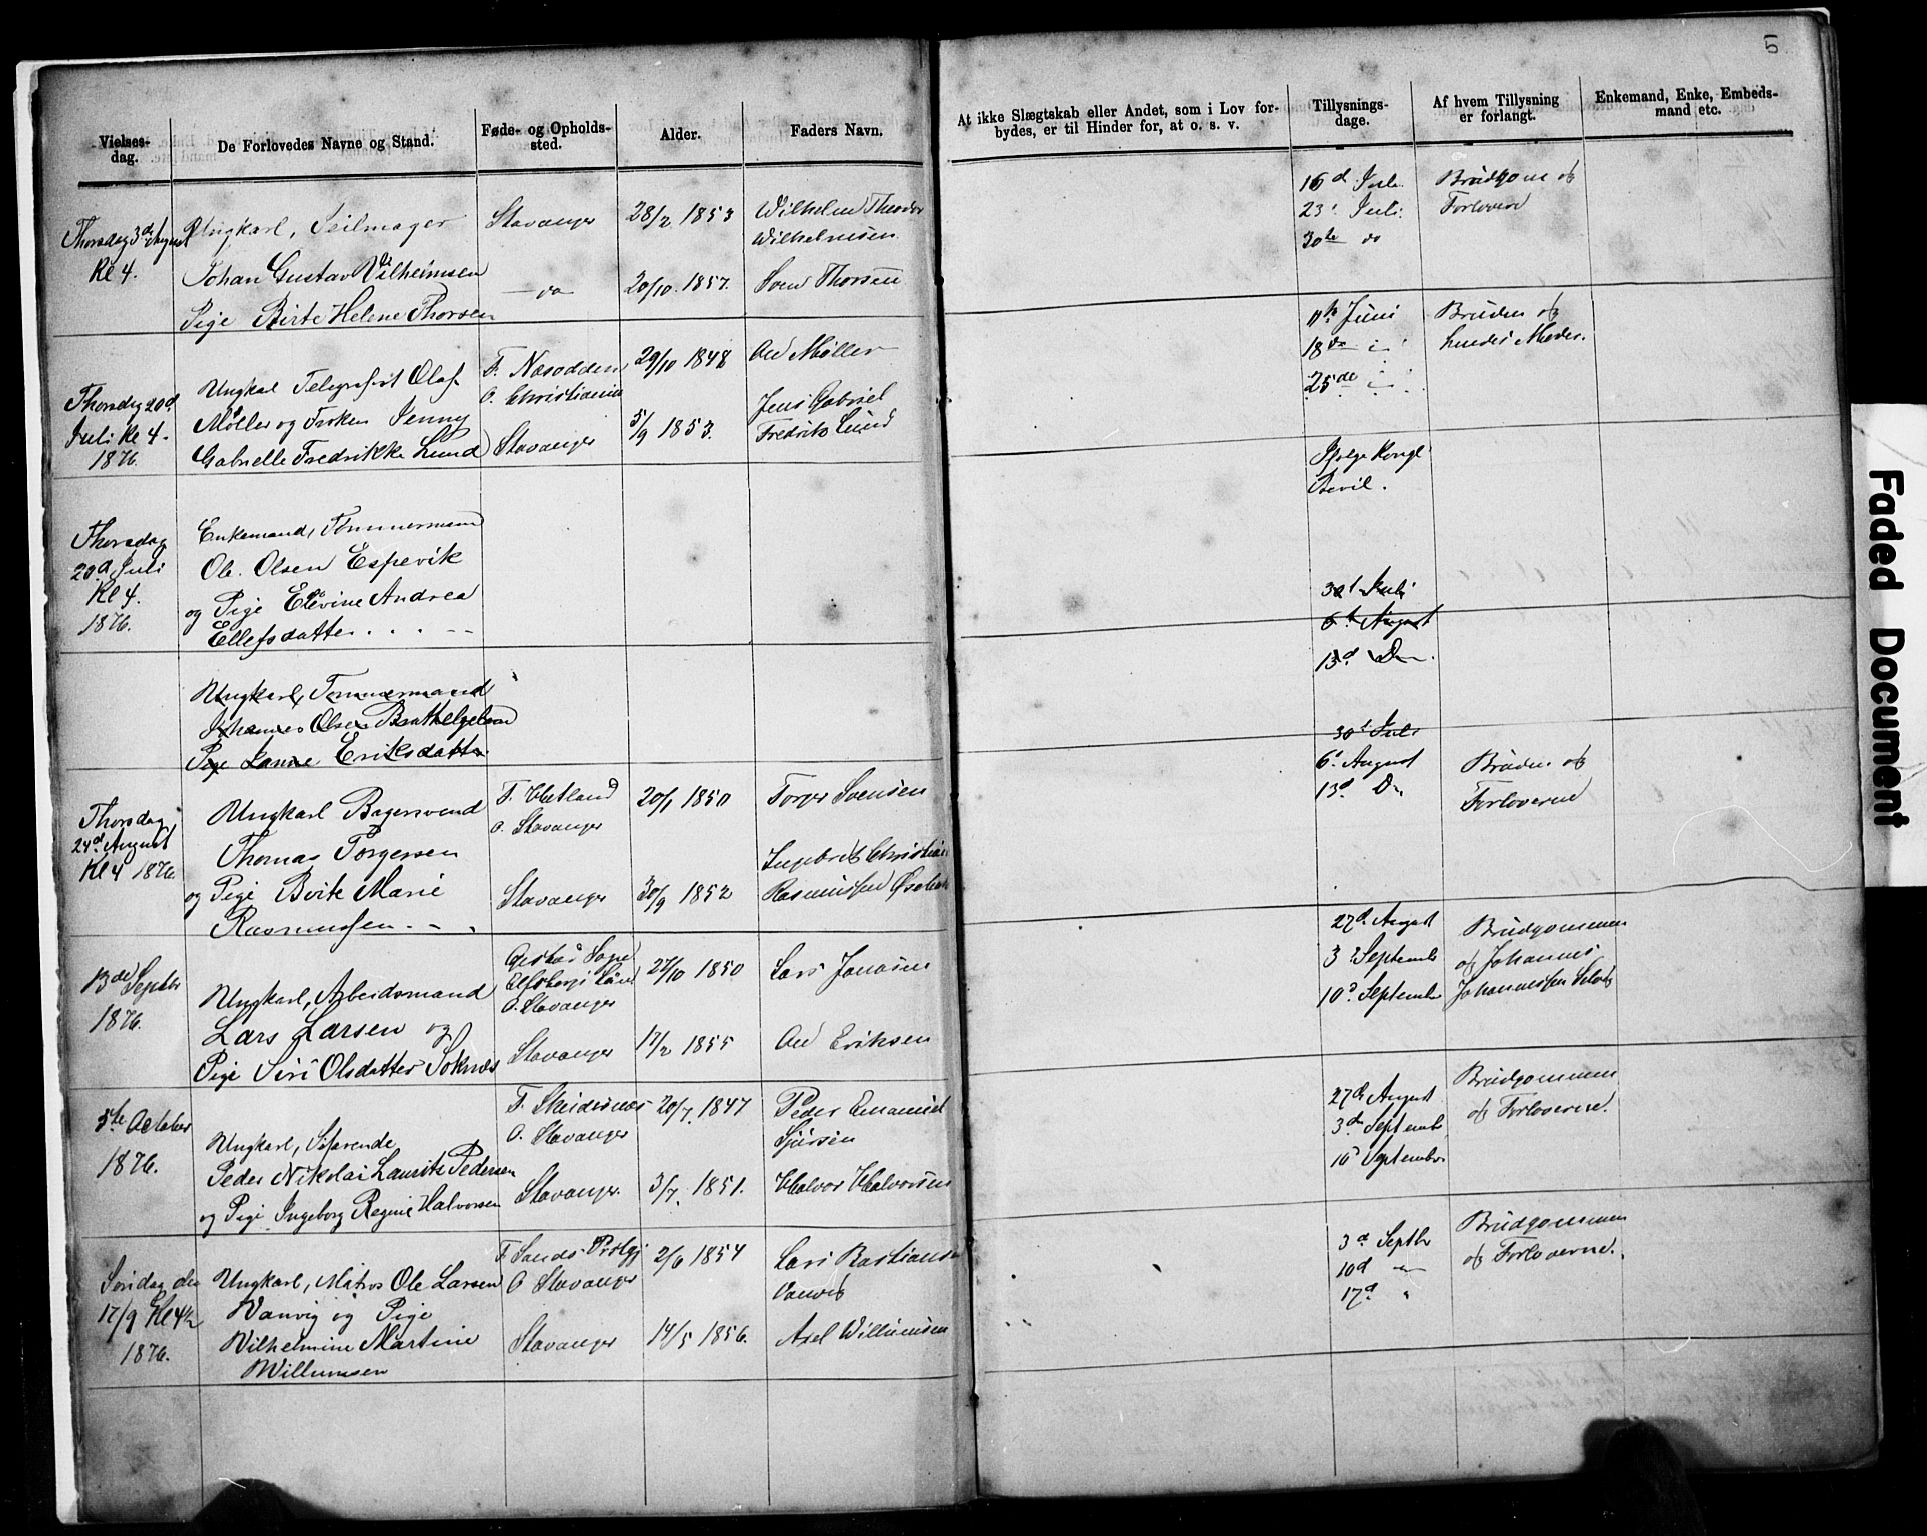 5
Vielses-
dag.
De Forlovedes Navne og Stand.
Føde- og Opholds-
sted.
Alder.
Faders Navn.
At ikke Slægtskab eller Andet, som i Lov for-
bydes, er til Hinder for, at o. s. v.
Tillysnings-
dage.
Af hvem Tillysning
er forlangt.
Enkemand, Enke, Embeds-
mand etc.
Thorsdag 3d August
Kl 4.
Ungkarl, Seilmager
Johan Gustav Vilhelmsen
Pige Birte Helene Thorsen
Stavanger
— do —
28/2 1853
20/10. 1857.
Wilhelm Theodor
Wilhelmsen
Sven Thorsen
16d Juli
23d Juli
30te do
Brudgom of
Forlovere
Thorsdag 20d
Juli Kl 4.
1876.
Ungkarl Telegrafist Olaf
Møller og Frøken Jenny
Gabrielle Fredrikke Lund
F. Næsodden
O. Christiania
Stavanger
29/10 1848
5/9 1853.
Møller
Jens Gabriel
Fredrik Lund
11te Juni
18de
25de
Bruden of
hendes Moder.
Thorsdag
20d Juli
Kl 4.
1876.
Enkemand, Tømmermand
Ole Olsen Espevik
og Pige Elevine Andrea
Ellefsdatter
Ifølge Kongl
Bevil.
Ungkarl, Tømmermand
Johannes Olsen
Pige Eriksdatter
30d Juli
6te August
13d Do
Thorsdag
24d August
Kl 4 1876.
Ungkarl Bagersvend
Thomas Torgersen
og Pige Birte Marie
Rasmussen
F. Hetland
O. Stavanger
Stavanger
20/1 1850
30/9 1852
Torger Svensen
Ingebret Christian
Rasmussen
30d Juli
6d August
13d Do
Bruden of
Forloverne
13de Septbr
1876.
Ungkarl, Arbeidsmand
Lars Larsen og
Pige Siri Olsdatter Soknæs
O. Stavanger
Stavanger
27/10 1850
17/2 1855
Lars Jonasen
Eriksen
27d August
3d September
10d September
Brudgommen
of Johannes
Johannessen
5te October
1876.
Ungkarl, Søfarende
Peder Nikolai Laurits Pedersen
og Pige Ingeborg Regine Halvorsen
F. Skeidesnæs
O. Stavanger
Stavanger.
20/7. 1847
3/7. 1851.
Peder Emanuel
Sjursen
Halvor Halvorsen
27d August
3d September
10d September
Brudgommen
of Forloverne.
Søndag den
17/9 Kl 4½
1876.
Ungkarl, Matros Ole Larsen
Vanvig og Pige
Wilhelmine Martine
Willumsen
F. Sands Prstgj
O Stavanger
Stavanger
2/6 1854
14/5 1856.
Lars Bastiansen
Vanvig
Axel Willumsen
3d Septbr
10d "
17d "
Brudgommen
of Forloverne.
Faded Document